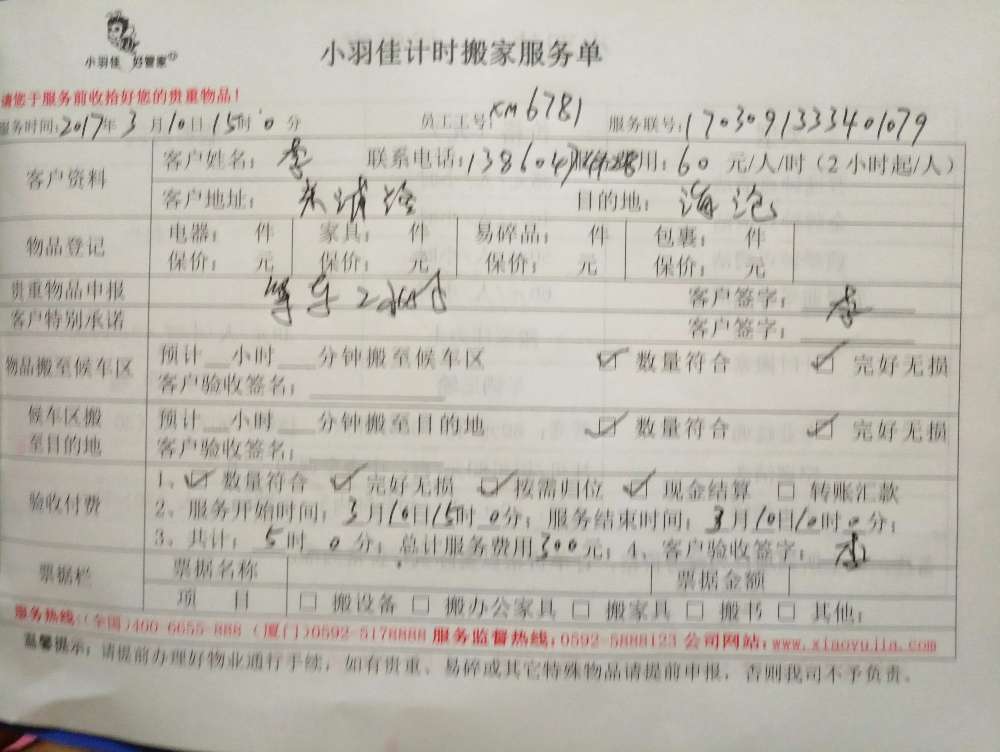 小羽佳 好管家
小羽佳计时搬家服务单
请您于服务前收拾好您的贵重物品！
服务时间：2017年3月10日15时0分 员工工号：XM6781 服务联号：1703091333401079
客户资料 客户姓名：李 联系电话： 用：60元/人/时（2小时起/人）
客户地址： 目的地：海沧
物品登记 电器： 件 家具： 件 易碎品： 件 包裹： 件
保价： 元 保价： 元 保价： 元 保价： 元
贵重物品申报 客户签字：李
客户特别承诺 客户签字：
物品搬至候车区 预计__小时___分钟搬至候车区 ☑ 数量符合 ☑ 完好无损
客户验收签名：
候车区搬至目的地 预计__小时___分钟搬至目的地 ☑ 数量符合 ☑ 完好无损
客户验收签名：
验收付费 1、☑ 数量符合 ☑ 完好无损 ☑ 按需归位 ☑ 现金结算 □ 转账汇款
2、服务开始时间：3月10日15时0分；服务结束时间：3月10日 时0分；
3、共计：5时0分；总计服务费用300元；4、客户验收签字：李
票据栏 票据名称 票据金额
项 目 □ 搬设备 □ 搬办公家具 □ 搬家具 □ 搬书 □ 其他：
服务热线：(全国)400-6655-888 (厦门)0592-5178888 服务监督热线：0592-5888123 公司网站：www.xiaoyujia.com
温馨提示：请提前办理好物业通行手续，如有贵重、易碎或其它特殊物品请提前申报，否则我司不予负责。